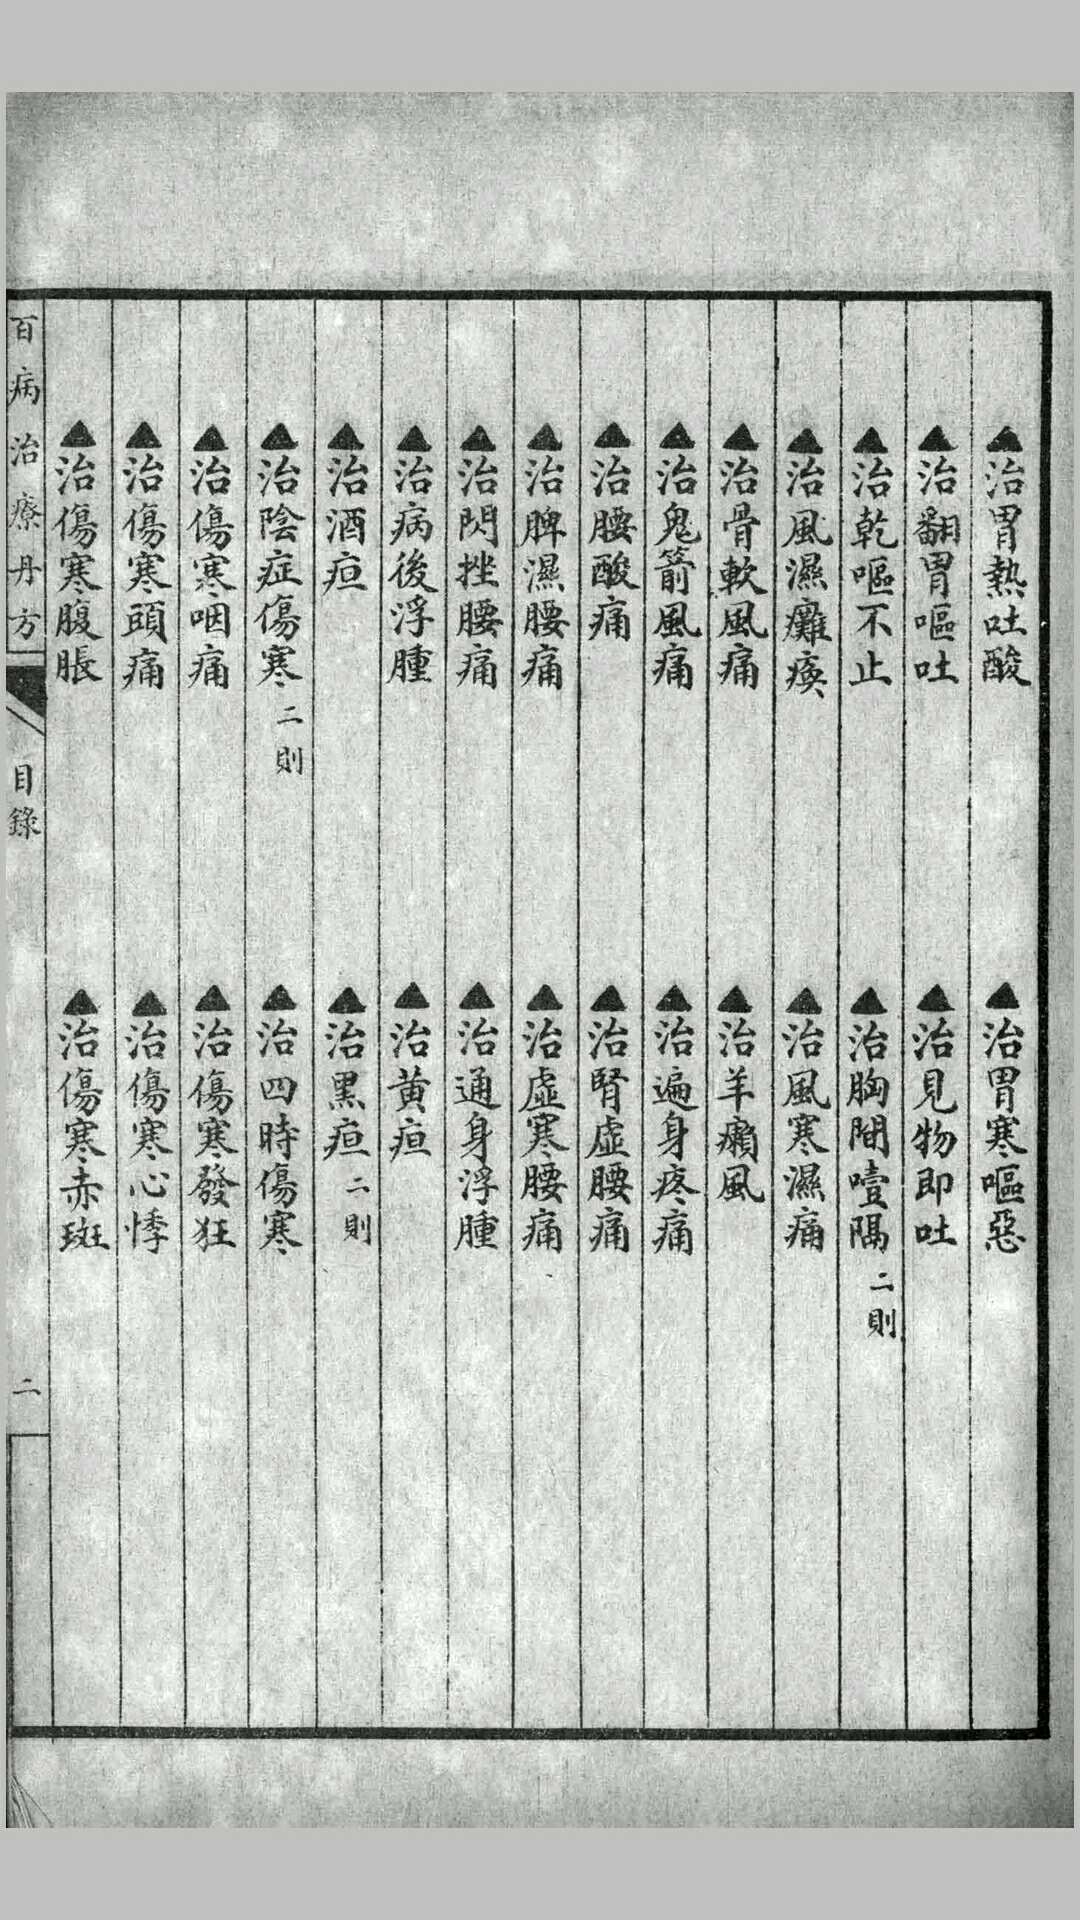 ▲治胃熱吐酸　▲治胃寒嘔惡
▲治翻胃嘔吐　▲治見物即吐
▲治乾嘔不止　▲治胸間噎隔二則
▲治風濕癱瘓　▲治風寒濕痛
▲治骨軟風痛　▲治羊癩風
▲治鬼箭風痛　▲治遍身疼痛
▲治腰酸痛　▲治腎虛腰痛
▲治脾濕腰痛　▲治虛寒腰痛
▲治閃挫腰痛　▲治通身浮腫
▲治病後浮腫　▲治黄疸
▲治酒疸　▲治黑疸二則
▲治陰症傷寒二則　▲治四時傷寒
▲治傷寒咽痛　▲治傷寒發狂
▲治傷寒頭痛　▲治傷寒心悸
▲治傷寒腹脹　▲治傷寒赤斑
百病治療丹方　目錄　二